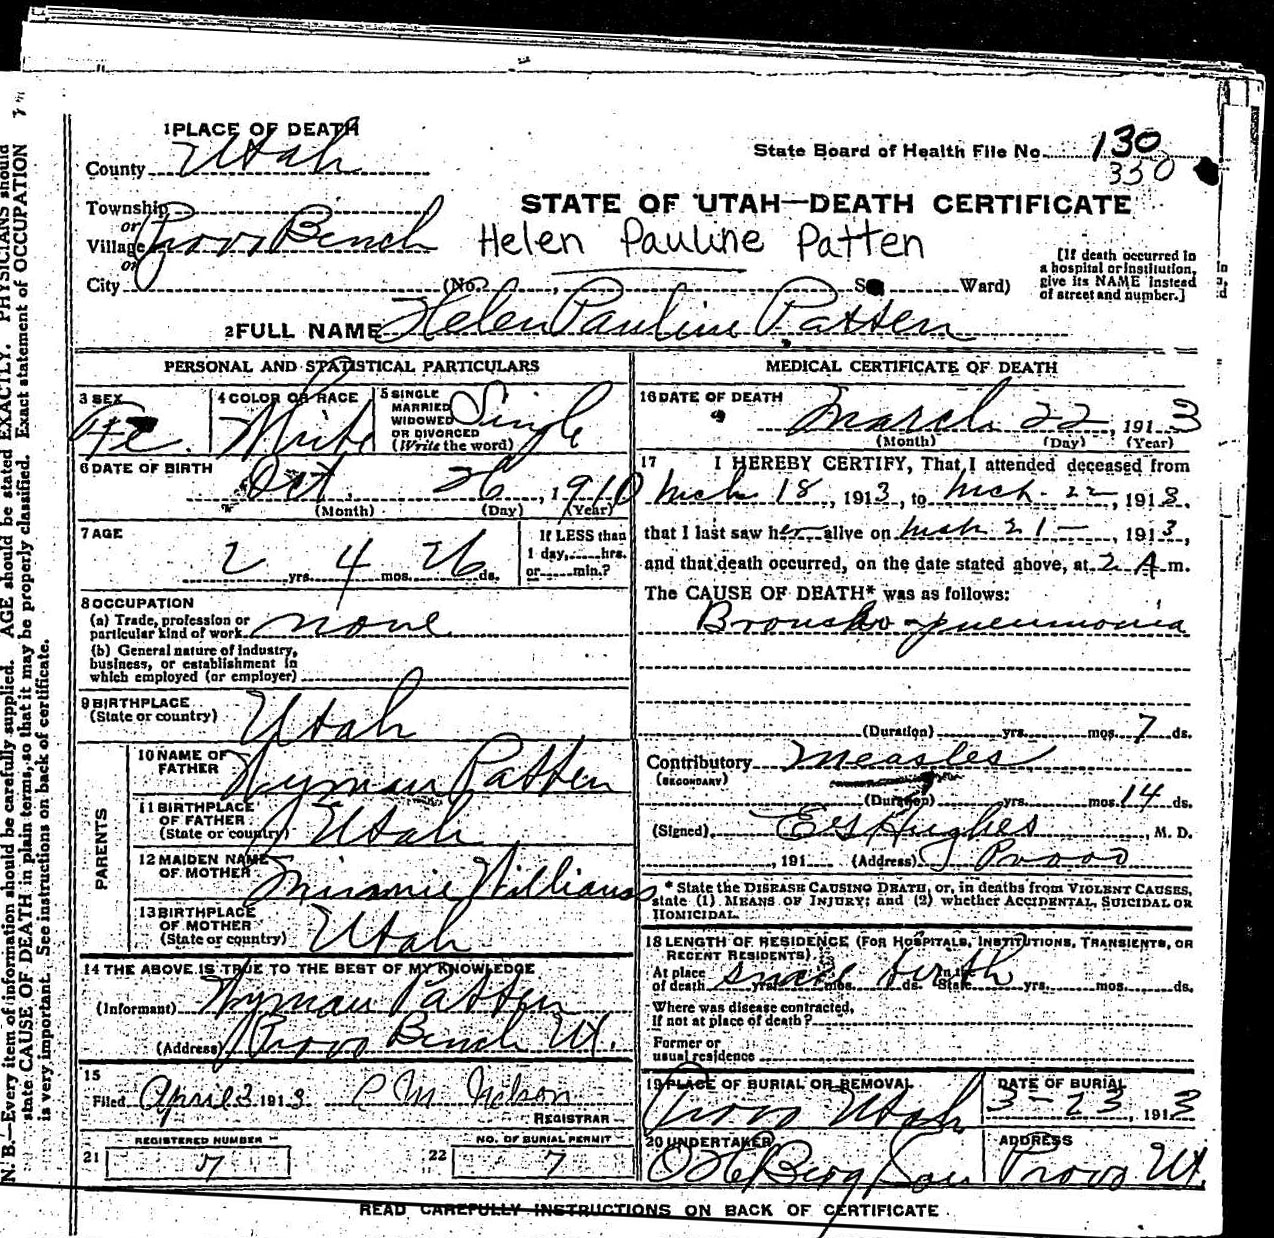 1 PLACE OF DEATH
County Utah
State Board of Health File No. 130
350
Township
or
Village Provo Bench
or
City
STATE OF UTAH—DEATH CERTIFICATE
Helen Pauline Patten
(No. , St. Ward)
[If death occurred in
a hospital or institution,
give its NAME instead
of street and number.]
2 FULL NAME Helen Pauline Patten
PERSONAL AND STATISTICAL PARTICULARS
3 SEX Fe.
4 COLOR OR RACE White
5 SINGLE
MARRIED
WIDOWED
OR DIVORCED
(Write the word) Single
6 DATE OF BIRTH
Oct. 26, 1910
(Month) (Day) (Year)
7 AGE
2 yrs. 4 mos. 26 ds.
If LESS than
1 day, hrs.
or min.?
8 OCCUPATION
(a) Trade, profession or
particular kind of work none
(b) General nature of industry,
business, or establishment in
which employed (or employer)
9 BIRTHPLACE
(State or country) Utah
PARENTS
10 NAME OF
FATHER Wyman Patten
11 BIRTHPLACE
OF FATHER
(State or country) Utah
12 MAIDEN NAME
OF MOTHER Minnie Williams
13 BIRTHPLACE
OF MOTHER
(State or country) Utah
14 THE ABOVE IS TRUE TO THE BEST OF MY KNOWLEDGE
(Informant) Wyman Patten
(Address) Provo Bench Ut.
15
Filed April 3 1913 P M Nelson
REGISTRAR
REGISTERED NUMBER
21 7
NO. OF BURIAL PERMIT
22 7
MEDICAL CERTIFICATE OF DEATH
16 DATE OF DEATH
March 22, 1913
(Month) (Day) (Year)
17 I HEREBY CERTIFY, That I attended deceased from
Mch 18, 1913, to Mch. 22, 1913.
that I last saw her alive on Mch 21, 1913,
and that death occurred, on the date stated above, at 2 A m.
The CAUSE OF DEATH* was as follows:
Broncho-pneumonia
(Duration) yrs. mos. 7 ds.
Contributory Measles
(SECONDARY)
(Duration) yrs. mos. 14 ds.
(Signed) E G Hughes, M. D.
, 191 (Address) Provo
* State the DISEASE CAUSING DEATH, or, in deaths from VIOLENT CAUSES,
state (1) MEANS OF INJURY; and (2) whether ACCIDENTAL, SUICIDAL OR
HOMICIDAL.
18 LENGTH OF RESIDENCE (FOR HOSPITALS, INSTITUTIONS, TRANSIENTS, OR
RECENT RESIDENTS).
At place
of death since birth yrs. mos. ds. In the State yrs. mos. ds.
Where was disease contracted,
If not at place of death?
Former or
usual residence
19 PLACE OF BURIAL OR REMOVAL
Provo Utah
DATE OF BURIAL
3-23, 1913
20 UNDERTAKER
O H Berg & Son
ADDRESS
Provo Ut.
READ CAREFULLY INSTRUCTIONS ON BACK OF CERTIFICATE
N. B.—Every item of information should be carefully supplied. AGE should be stated EXACTLY. PHYSICIANS should
state CAUSE OF DEATH in plain terms, so that it may be properly classified. Exact statement of OCCUPATION
is very important. See instructions on back of certificate.